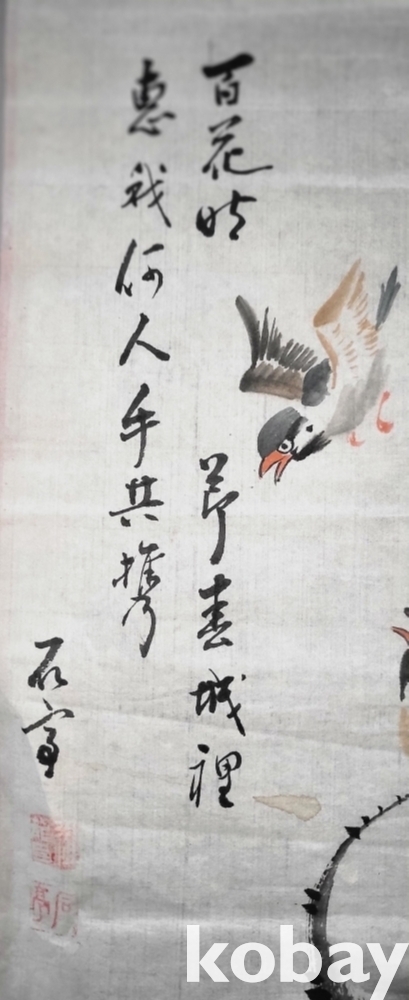 百花時節春城裡
惠我何人手共携
石
kobay